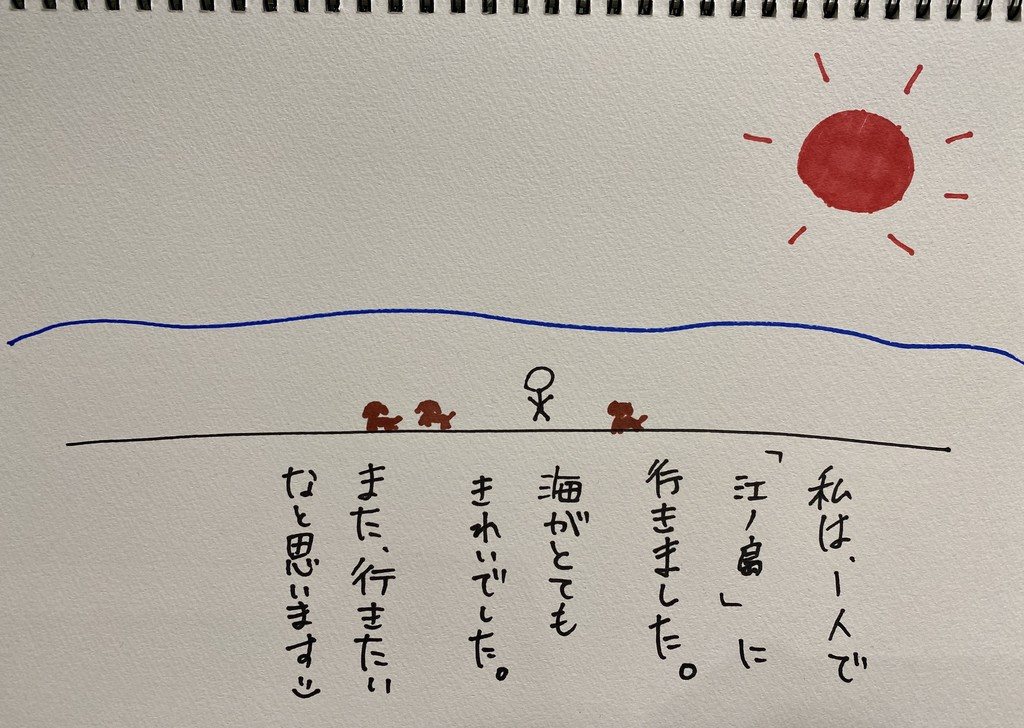 私は、1人で
「江ノ島」に
行きました。
海がとても
きれいでした。
また、行きたい
なと思います